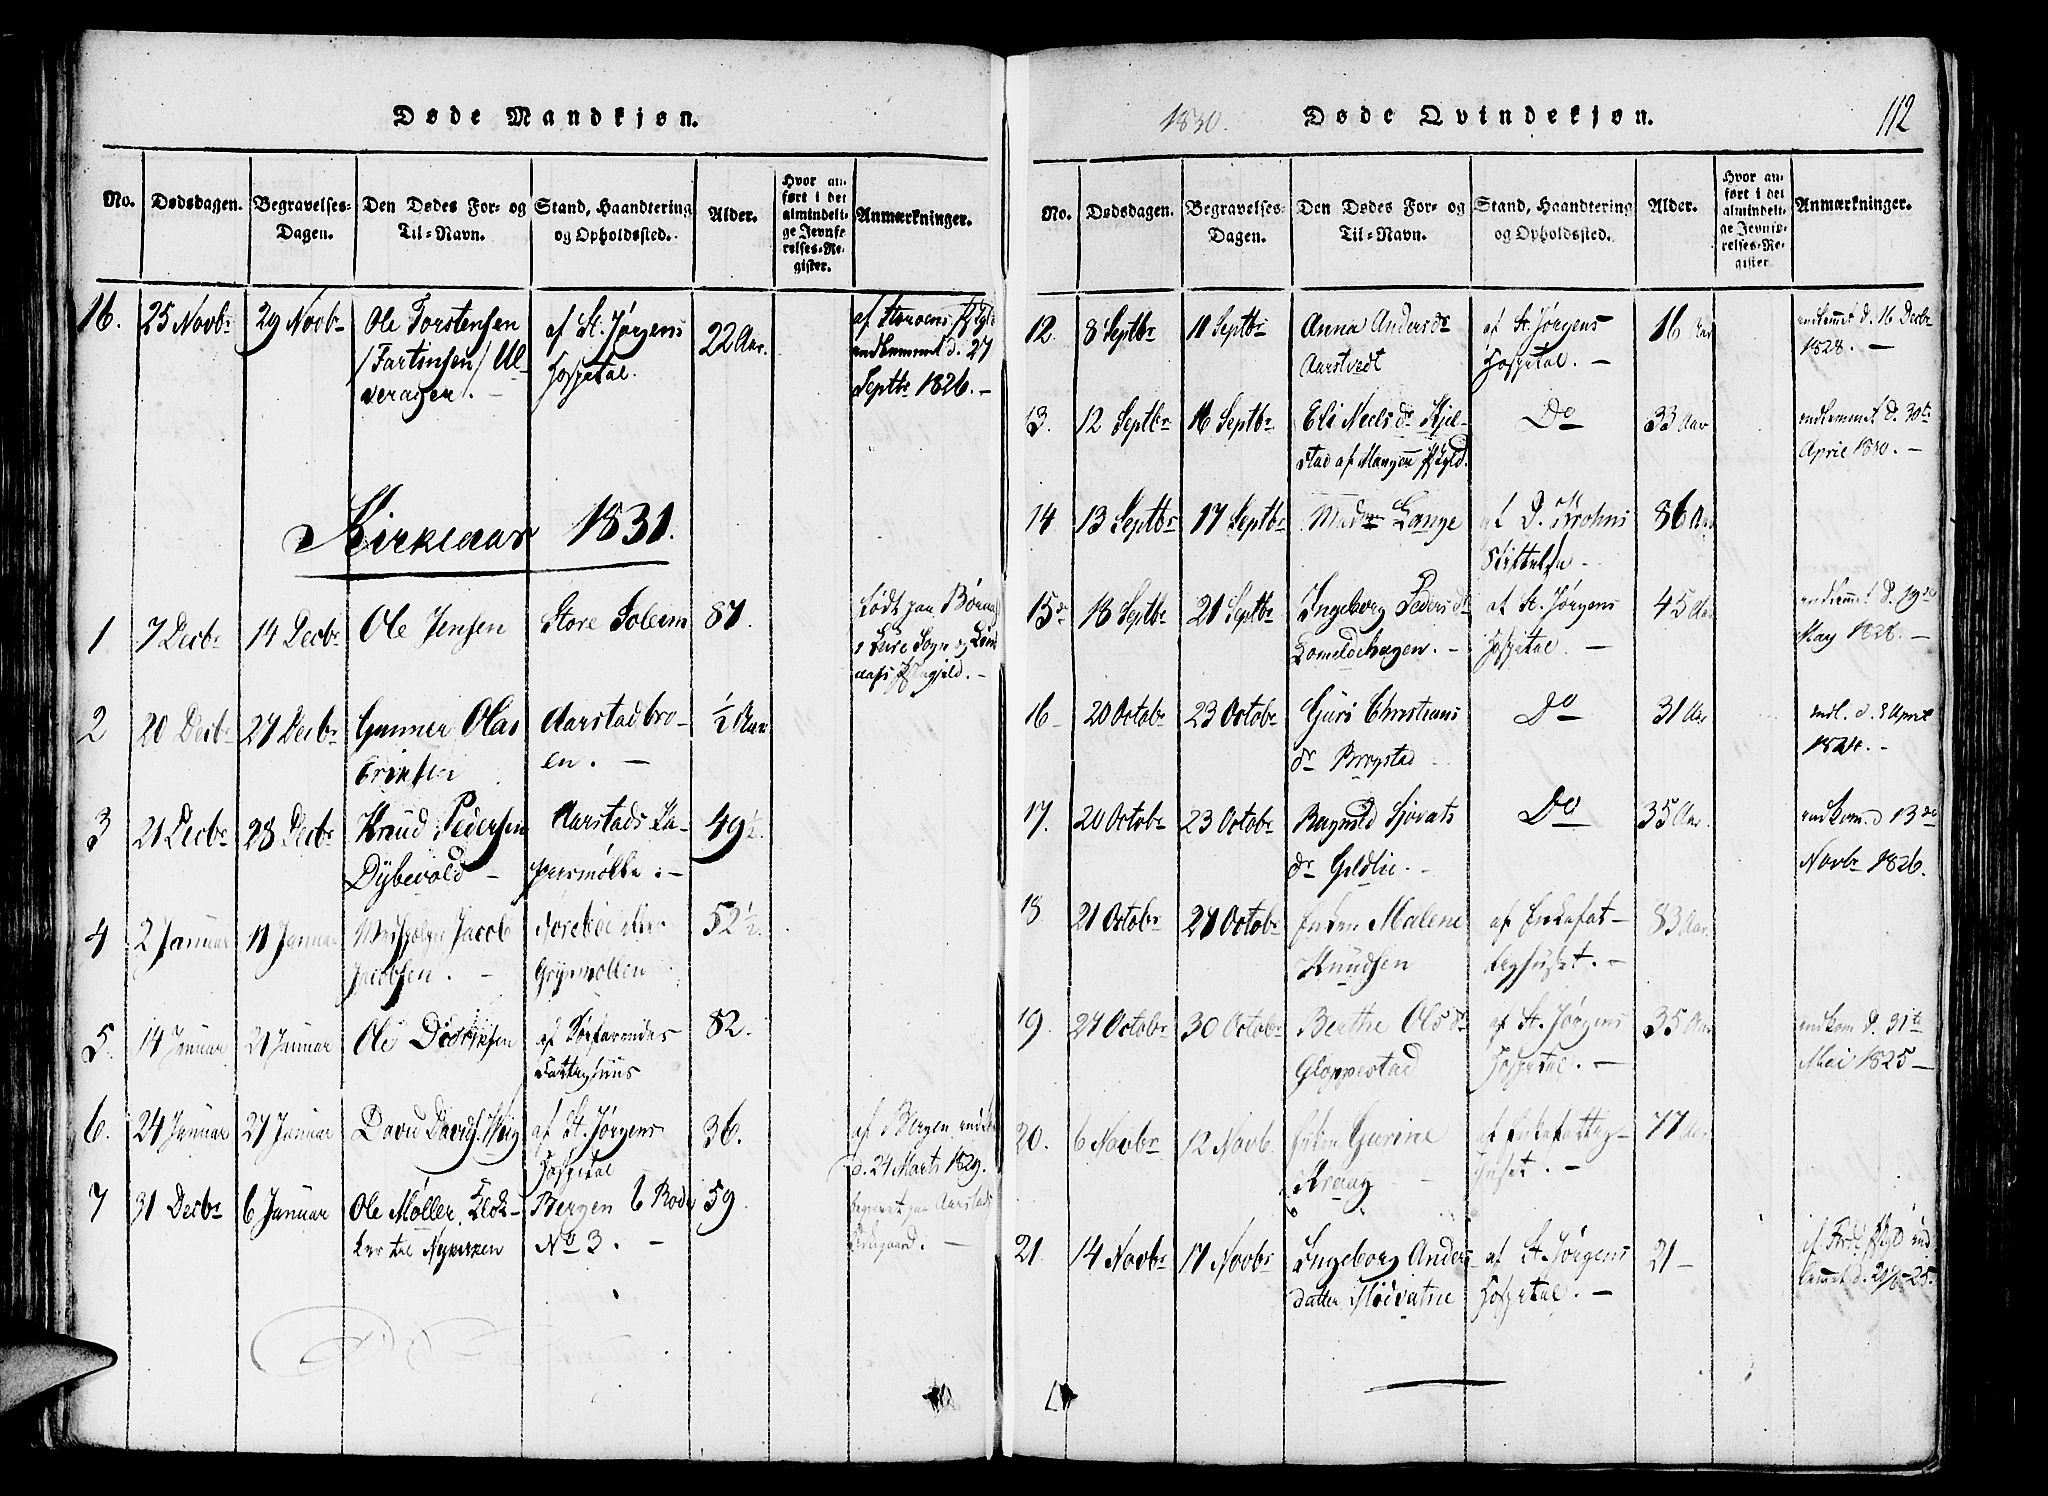 Døde Mandkjøn.
No. Dødsdagen. Begravelses-Dagen. Den Dødes For- og Til-Navn. Stand, Haandtering og Opholdssted. Alder. Hvor anført i det almindelige Jevnførelses-Register. Anmærkninger.
16. 25 Novbr 29 Novbr Ole Torstensen af St. Jørgens 22 Aar. af
/Tartinsen/ Ul- Hospital. indkommet d. 27
veragen. - Septbr 1826. -
Kirkeaar 1831.
1 7 Decbr 14 Decbr Ole Jensen Store Solem 87. født paa
Lure Sogn og
2 20 Decbr 27 Decbr Gunner Olas Aarstadbro- ½ Aar
Eriksen en. -
3 21 Decbr 28 Decbr Knud Pedersen Aarstads Pa- 49½.
Dybevold - piirmølle. -
4 2 Januar 11 Januar Jacob 52½.
Jacobsen. - Grynmøllen
5. 14 Januar 21 Januar Ole Didriksen af Søefarendes 82.
Fattighuus
6. 24 Januar 27 Januar David Davids. af St. Jørgens 36. af Bergen
Hospital d. 24 Marts 1829.
7 31 Decbr 6 Januar Ole Møller, Klok- Bergen 6 Rode 59. begravet paa Aarstads
ker til Nykirken No 3. - Kirkegaard. -
1830. Døde Qvindekjøn. 112
No. Dødsdagen. Begravelses-Dagen. Den Dødes For- og Til-Navn. Stand, Haandtering og Opholdssted. Alder. Hvor anført i det almindelige Jevnførelses-Register Anmærkninger.
12. 8 Septbr 11 Septbr Anna Andersdr af St. Jørgens 16 Aar indkommet d. 16 Decbr
Aarstvedt Hospital. - 1828. -
13. 12 Septbr 16 Septbr Eli Nielsdr Kjel- Do 33 Aar indkommet d. 30te
stad af Manger April 1830. -
14 13 Septbr 17 Septbr Madme Lange af D. Krohns 86 Aar
Stiftelse -
15de 18 Septbr 21 Septbr Ingeborg Pedersdr af St. Jørgens 45 Aar indkommet d. 19de
Hospital. - May 1828. -
16 20 Octobr 23 Octobr Guri Christians Do 31 Aar indk. d. 3 April
dr 1824. -
17. 20 Octobr 23 Octobr Ragnild Sjovats Do 35 Aar. indkom. d 13de
dr Gildlie. - Novbr 1826.
18 21 Octobr 27 Octobr Enken Malene af Enkefat- 83 Aar.
Knudsen tighuset. -
19. 27 Octobr 30 Octobr Berthe Olsdr af St. Jørgens 35 Aar indkom d. 31te
Gloppestad Hospital. - Mai 1825 -
20. 6 Novbr 12 Novb. Enken Gurine af Enkefattig- 77 Aar
Kraag huset. -
21. 14 Novbr 17 Novbr Ingeborg Anders- af St. Jørgens 21 -
datter Hospital. -